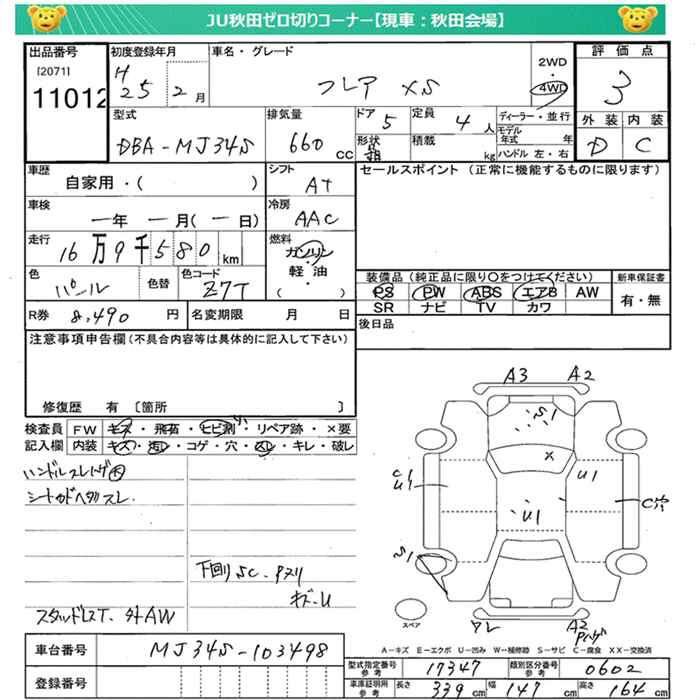 JU秋田ゼロ切りコーナー【現車：秋田会場】
出品番号
[2071]
11012
初度登録年月
H 25 2月
車名・グレード
フレア XS
2WD
・
4WD
評価点
3
外装 内装
D C
型式
DBA-MJ34S
排気量
660 CC
ドア 5
形状 箱
定員 4人
積載 kg
ディーラー・並行
モデル年式 年
ハンドル 左・右
車歴
自家用・( )
シフト
AT
車検
一年 一月(一日)
冷房
AAC
走行
16万9千580km
燃料
ガソリン
・
軽油
( )
色
パール
色替
色コード
Z7T
R券 8,490円
名変期限 月 日
セールスポイント (正常に機能するものに限ります)
装備品 (純正品に限り○をつけてください)
PS PW ABS エアB AW
SR ナビ TV カワ
新車保証書
有・無
後日品
注意事項申告欄 (不具合内容等は具体的に記入して下さい)
修復歴 有 [箇所 ]
検査員記入欄
FW キズ・飛石・ヒビ割・リペア跡・×要
内装 キズ・汚レ・コゲ・穴・スレ・キレ・破レ
ハンドルスレハゲ大
下回りSC.
スタッドレスT. 外AW
A3 A2
S1
×
U1
U1
C1
U1
C穴
S1
A2
スペア
A－キズ E－エクボ U－凹み W－補修跡 S－サビ C－腐食 XX－交換済
車台番号
MJ34S-103498
登録番号
型式指定番号 参考 17347
類別区分番号 参考 0602
車庫証明用 参考 長さ 339cm 幅 147cm 高さ 164cm